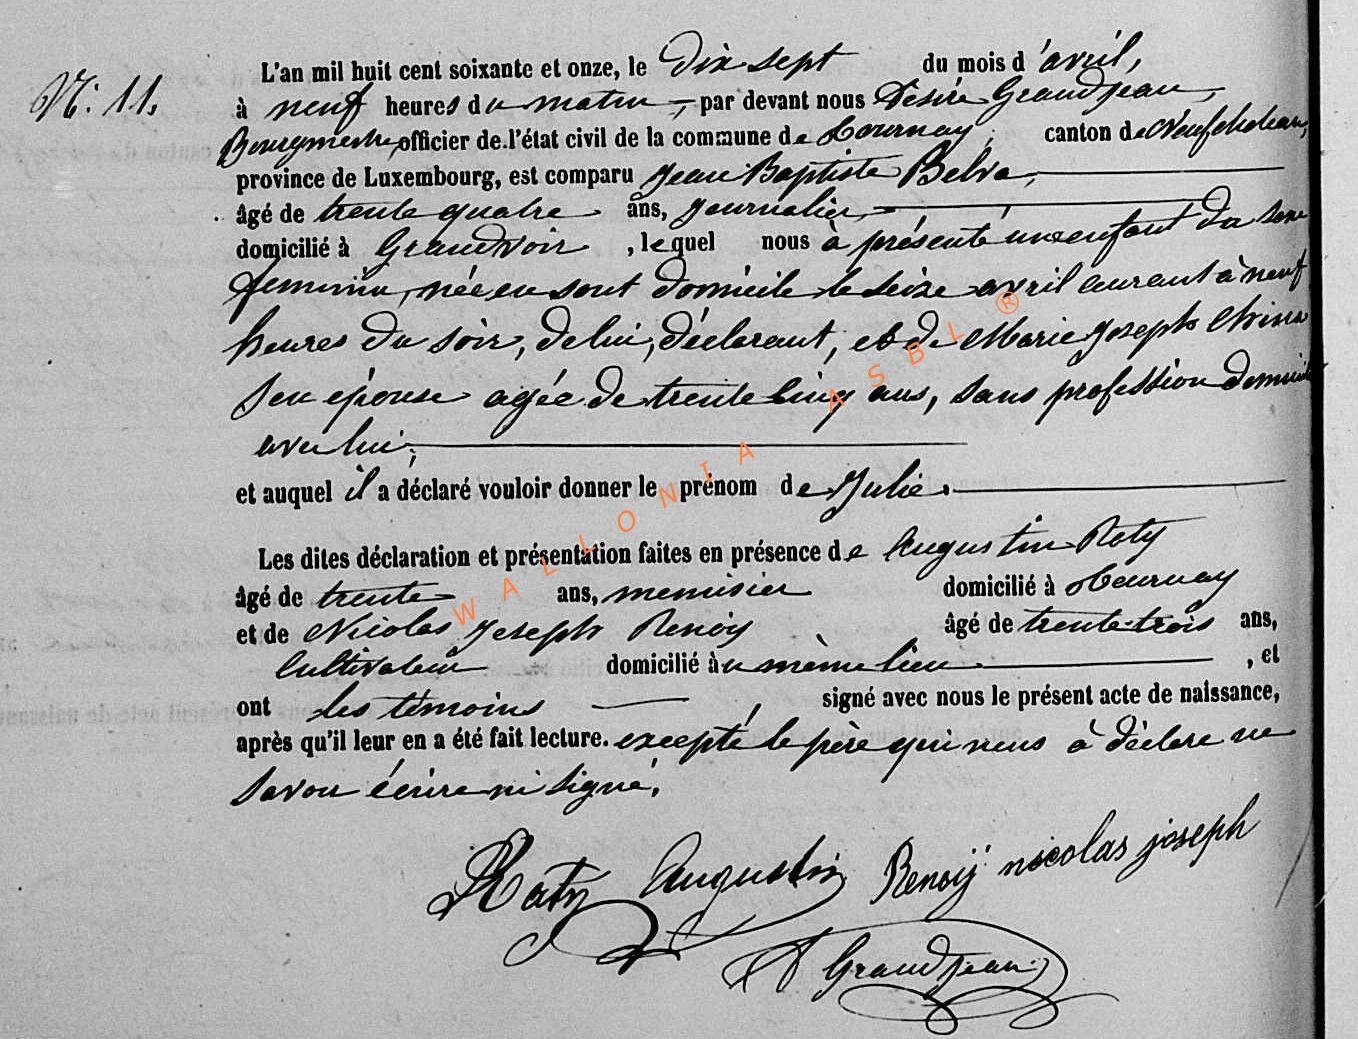 N°: 11.
L'an mil huit cent soixante et onze, le Dix sept du mois d'avril,
à neuf heures du matin, par devant nous Désiré Grandjean,
Bourgmestre, officier de l'état civil de la commune de Tournay, canton de Neufchateau,
province de Luxembourg, est comparu Jean Baptiste Belva,
âgé de trente quatre ans, journalier,
domicilié à Grandvoir, lequel nous à présenté un enfant du sexe
feminin, née en sont domicile le seize avril courant à neuf
heures du soir, de lui, déclarant, et de Marie Joseph
son épouse agée de trente cinq ans, sans profession
avec lui;
et auquel il a déclaré vouloir donner le prénom de Julie.
Les dites déclaration et présentation faites en présence de Augustin Roty
âgé de trente ans, menuisier domicilié à Tournay
et de Nicolas Joseph Renoy âgé de trente-trois ans,
Cultivateur domicilié au même lieu, et
ont les témoins, signé avec nous le présent acte de naissance,
après qu'il leur en a été fait lecture. excepté le père qui nous à déclaré ne
savoir écrire ni signé.
Roty Augustin Renoÿ nicolas joseph
D Grandjean
WALLONIA ASBL ®